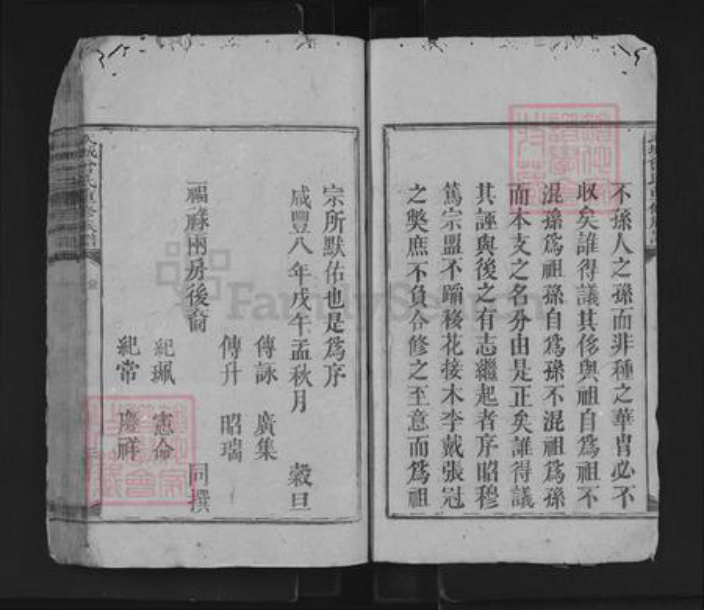 不孫人之孫而非種之華冑必不
收矣誰得議其侈與祖自爲祖不
混孫爲祖孫自爲孫不混祖爲孫
而本支之名分由是正矣誰得議
其誣與後之有志繼起者序昭穆
篤宗盟不蹈移花接木李戴張冠
之獘庶不負合修之至意而爲祖
宗所默佑也是爲序
咸豐八年戊午孟秋月 穀旦
傳詠 廣集
傳升 昭瑞
福祿兩房後裔 同撰
紀珮 憲命
紀常 慶祥
FamilySearch